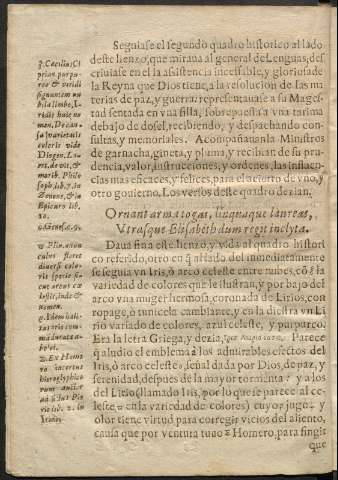 Seguiase el segundo quadro historico al lado
deste lienzo, que miraua al general de Lenguas, des
criuiase en el la asistencia incessable, y gloriosa de
la Reyna que Dios tiene, a la resolucion de las ma
terias de paz, y guerra: representauase a su Mages-
tad sentada en vna silla, sobrepuesta a vna tarima
debajo de dosel, recibiendo, y despachando con-
sultas, y memoriales. Acompañauanla Ministros
de garnacha, gineta, y pluma, y recibian de su pru-
dencia, valor, instrucciones, y ordenes, las influen-
cias mas eficaces, y felices, para el acierto de vno, y
otro gouierno. Los versos deste quadro dezian.
Ornant arma togas, linquaque laureas,
Vtrasque Elisabeth dum regit inclyta.
Daua fin a este lienzo, y vida al quadro histori
co referido, otro en que al lado del immediatamente
se seguia vn Iris, ò arco celeste entre nubes, con la
variedad de colores que le ilustran, y por bajo del
arco vna muger hermosa, coronada de Lirios, con
ropage, ò tunicela cambiante, y en la diestra vn Li
rio variado de colores, azul celeste, y purpureo.
Era la letra Griega, y dezia,
Parece
que aludio el emblema à los admirables efectos del
Iris, ò arco celeste, señal dada por Dios, de paz, y
serenidad, despues de la mayor tormenta: y a los
del Lirio (llamado Iris, por lo que se parece al ce-
leste en la variedad de colores) cuyo jugo, y
olor tiene virtud para corregir vicios del aliento,
causa que por ventura tuuo Homero, para fingir
que
3. Cæcilius Ci
prian. purpu-
reæ & veridi
signantem nu
bila limbo, I-
ridis
Decau-
sa varietatis
coloris vide
Diogen. La-
de vit. &
morib. Philo
soph. lib. 7. in
Zenone, & in
Epicuro lib.
10.
Genes. c. 9.
Plin.
flores
diuersi colo-
ris specie si-
cut arcus cæ
lestis, inde &
nomen.
Idem hali-
tus
com-
manducata a-
bolet.
2. Ex Home
ro incertus
hieroglyphico
rum auctor
Pie
rio lib. 2. in